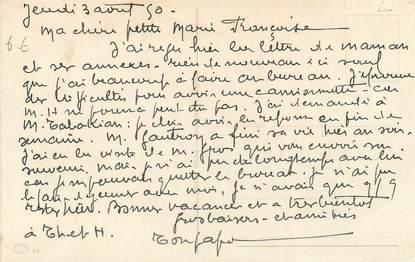 Jeudi 3 août 50.-
6€ Ma chère petite Marie Françoise
J'ai reçu hier la lettre de maman
et ses annexes. rien de nouveau ici sauf
que j'ai beaucoup à faire au bureau. J'éprouve
des difficultés pour avoir une camionnette - car
M. H ne pourra peut être pas. J'ai demandé à
M. Tabakian: je dois avoir la réponse en fin de
semaine. M. Gautron a fini sa vie hier au soir.
J'ai eu la visite de M. Gros qui vous envoie son
souvenir, mais je n'ai pu longtemps avec lui
car je ne pouvais quitter le bureau. Je n'ai pu
le faire déjeuner avec moi, je n'avais que
hier. Bonnes vacances et à très bientôt
Gros baisers et amitiés
à Th. et H.
Ton papa